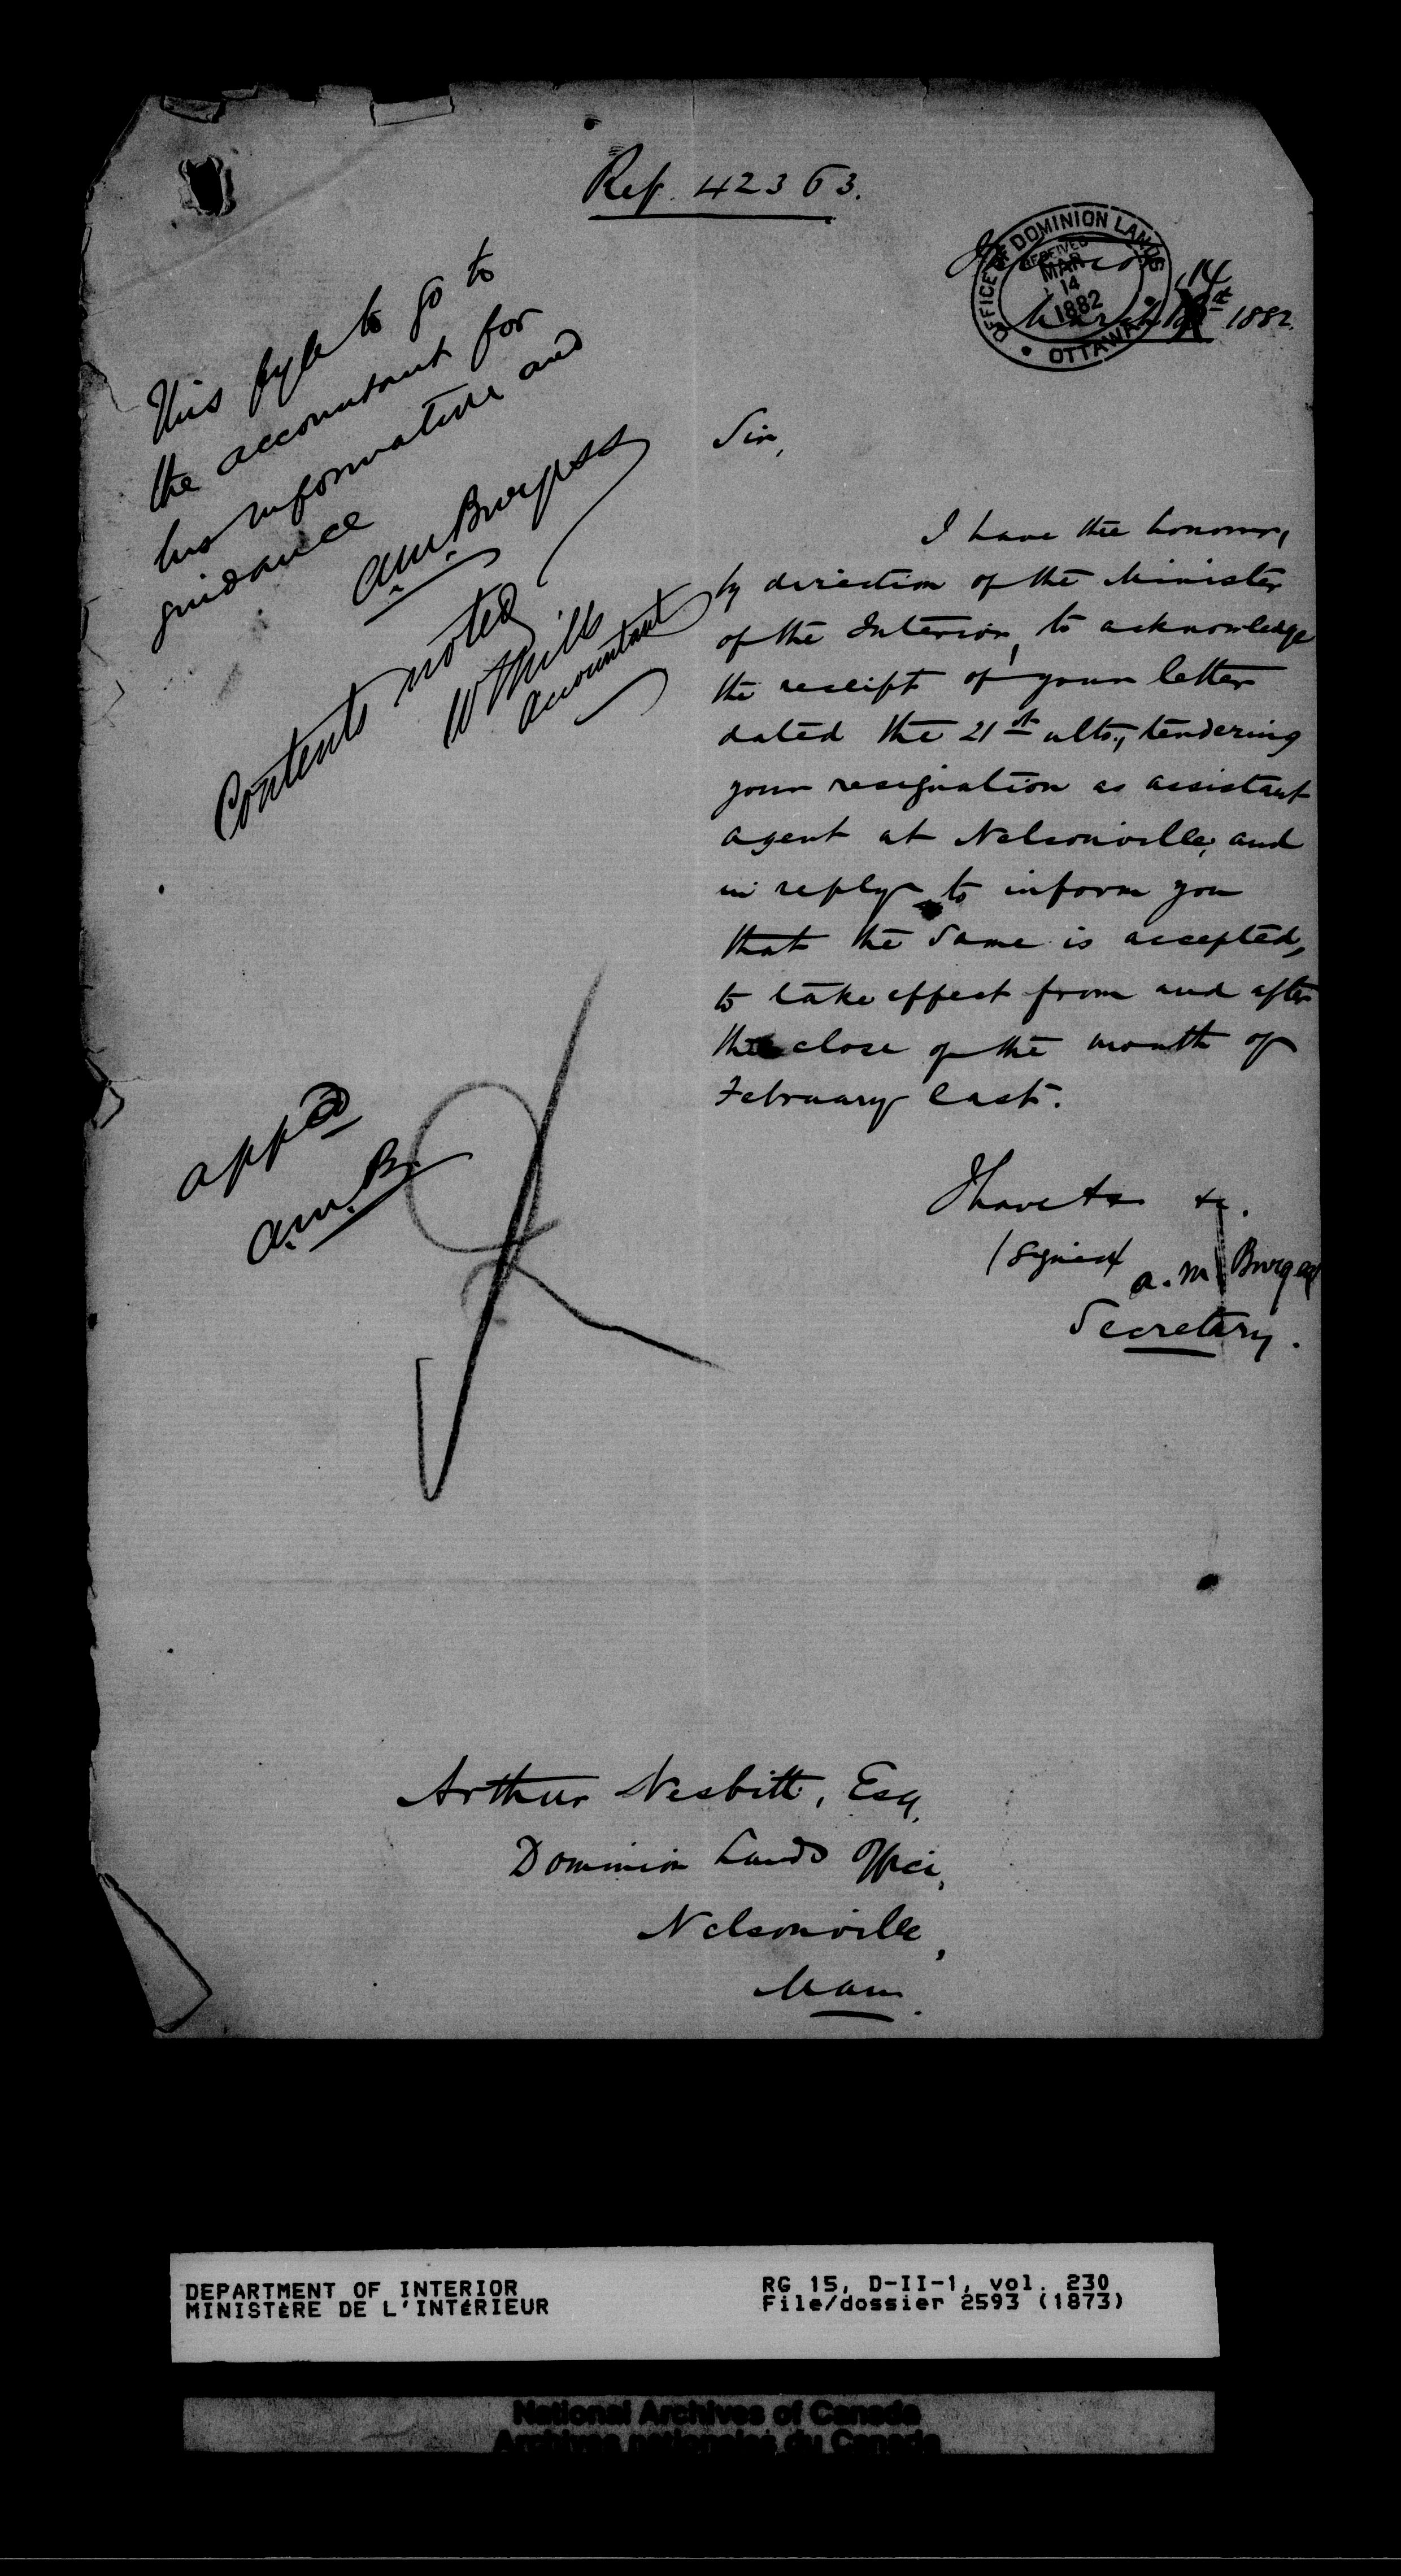 Ref. 42363.
Interior
OFFICE OF DOMINION LANDS
RECEIVED
MAR
14
1882
OTTAWA
March 14 1882.
This fyle to go to
the accountant for
his information and
guidance
A.M. Burgess
Contents noted
W Mills
Accountant
Sir,
I have the honour,
by direction of the Minister
of the Interior, to acknowledge
the receipt of your letter
dated the 21st ulto., tendering
your resignation as assistant
agent at Nelsonville, and
in reply to inform you
that the same is accepted,
to take effect from and after
the close of the month of
February last.
appd
A.M.B.
I have &c.
(Signed A.M. Burgess
Secretary.
Arthur Nesbitt, Esq.
Dominion Lands Office,
Nelsonville,
Man.
DEPARTMENT OF INTERIOR
MINISTÈRE DE L'INTÉRIEUR
RG 15, D-II-1, vol. 230
File/dossier 2593 (1873)
National Archives of Canada
Archives nationales du Canada